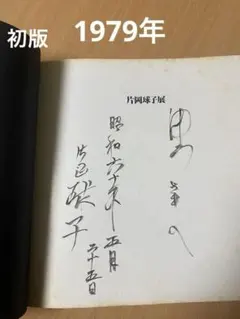 初版 1979年
片岡球子展
昭和六十年五月
二十五日
片岡球子